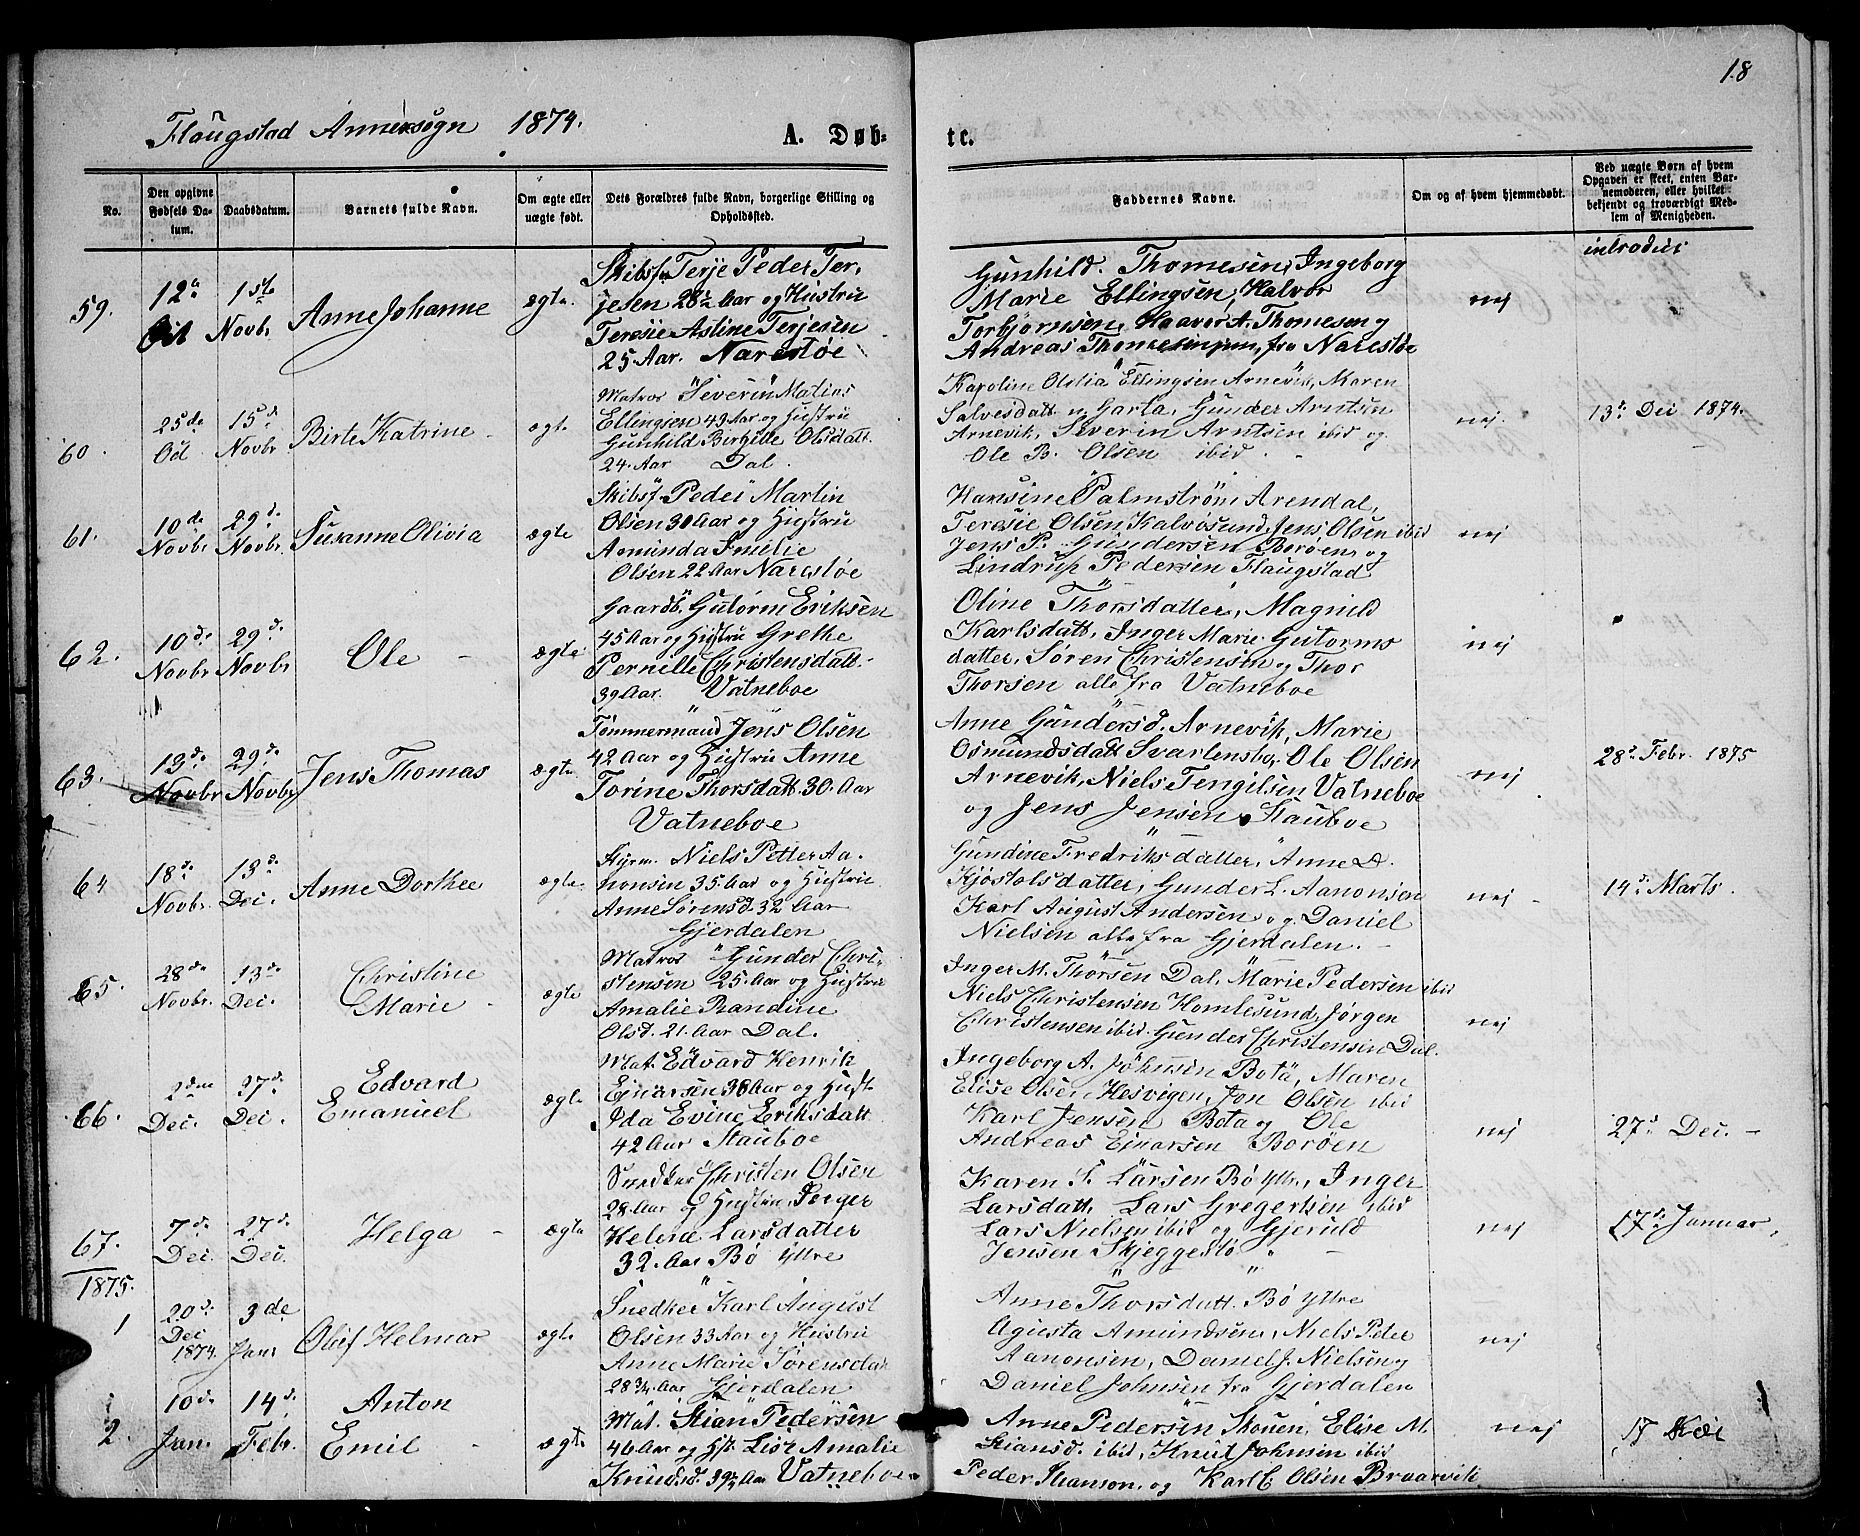 18
Flaugstad Annexsogn 1874.
A. Døbte.
No.
Den opgivne Fødsels Datum.
Daabsdatum.
Barnets fulde Navn.
Om ægte eller uægte født.
Dets Forældres fulde Navn, borgerlige Stilling og Opholdssted.
Faddernes Navne.
Om og af hvem hjemmedøbt.
Ved uægte Børn af hvem Opgaven er skeet, enten Barnemoderen, eller hvilket bekjendt og troværdigt Medlem af Menigheden.
introduct
59.
12te Oct
1ste Novbr
Anne Johanne
ægte.
Skibsf. Terje Peder Ter,
jesen 28½ Aar og Hustru
Teresie Astine Terjesen
25 Aar. Narestøe
Gunhild. Thomesen, Ingeborg
Marie Ellingsen, Halvor
Torbjørnsen, Haavor A. Thomesen og
Andreas, fra Narestøe
nej
60.
25de Oct.
15d. Novbr
Birte Katrine
ægte
Matros Severin Matias
Ellingsen 49 Aar og Hustru
Gunhild Birgitte Olsdatt.
24 Aar Dal.
Karoline Ellingsen Arnevik, Maren
Salvesdatt. Garta, Gunder Arntsen
Arnevik, Severin Arntsen ibid og
Ole B. Olsen ibid.
nej.
13d. Dec 1874.
61.
10de Novbr.
29d. Novbr.
Susanne Olivia
ægte
Skibsf. Peder Martin
Olsen 30 Aar og Hustru
Asmunda Emelie
Olsen 22 Aar Narestøe
Hansine Palmstrøm Arendal,
Teresie Olsen Kalvøsund, Jens Olsen ibid
Jens P. Gundersen Borøen, og
Lindrup Pedersen Flaugstad
nej
62.
10d. Novbr
29d. Novbr
Ole
ægte
Gaardb. Gutorm Eriksen
45 Aar og Hustru Grethe
Pernille Christensdatt.
39 Aar. Vatneboe
Oline Thorsdatter, Magnild
Karlsdatt, Inger Marie Gutorms
datter, Søren Christensen og Thor
Thorsen alle fra Vatneboe
nej
63.
13d. Novbr
29d. Novbr
Jens Thomas
ægte
Tømmermand Jens Olsen
42 Aar og Hustru Anne
Torine Thorsdatt. 30 Aar
Vatneboe
Anne Gundersd. Arnevik, Marie
Osmundsdatt Svartensby, Ole Olsen
Arnevik, Niels Tengilsen Vatneboe
og Jens Jensen Stauboe
nej
28d. Febr. 1875
64
18d. Novbr.
13d. Dec.
Anne Dorthee
ægte
Styrm. Niels Petter Aa
nonsen 35 Aar og Hustru
Anne Sørensd. 32 Aar
Gjerdalen
Gundine Fredriksdatter, Anne D.
Kjøstolsdatter, Gunder L. Aanonsen
Karl August Andersen og Daniel
Nielsen alle fra Gjerdalen.
nej
14d. Marts.
65.
28de Novbr.
13d. Dec.
Christine
Marie
ægte
Matros Gunder Chri
stensen 25 Aar og Hustru
Amalie Randine
Olsd. 21 Aar Dal.
Inger M. Thorsen Dal, Marie Pedersen ibid
Niels Christensen Homlesund, Jørgen
Christensen ibid. Gunder Christensen Dal.
nej
66.
2den Dec.
27d. Dec.
Edvard
Emanuel
ægte
Mat. Edvard Henrik
Ejnarsen 38 Aar og Hust.
Ida Evine Eriksdatt.
42 Aar Stauboe
Ingeborg A. Johnsen Bota, Maren
Elise Olsen Hesvigen, Jon Olsen ibid
Karl Jensen Bota og Ole
Andreas Ejnarsen Borøen
nej
27d. Dec.
67.
7d. Dec.
27d. Dec.
Helga
ægte
Snedker Christen Olsen
28 Aar og Hustru Inger
Helene Larsdatter
32 Aar Bø Yttre
Karen S. Larsen Bø Yttre, Inger
Larsdatt, Lars Gregertsen ibid
Lars Nielsen ibid og Gjeruld
Jensen Skjeggestø
nej
17d. Januar,
1875.
1
20d. Dec 1874.
3de Jan.
Oluf Helmar
ægte
Snedker Karl August
Olsen 33 Aar og Hustru
Anne Marie Sørensdat
28 3/4 Aar Gjerdalen
Anne Thorsdatt. Bø Yttre
Agusta Amundsen, Niels Peter
Aanonsen, Daniel J. Nielsen og
Daniel Johnsen fra Gjerdalen
nej
2
10d. Jan.
14d. Febr.
Anton
Emil
ægte
Mat. Stian Pedersen
46 Aar og Hst. Amalie
Knudsd. 39½ Aar Vatneboe.
Anne Pedersen Skouen, Elise M.
Stiansd. ibid, Knut Johnsen ibid
Peder, og Karl C. Olsen Braarvik.
nej
17